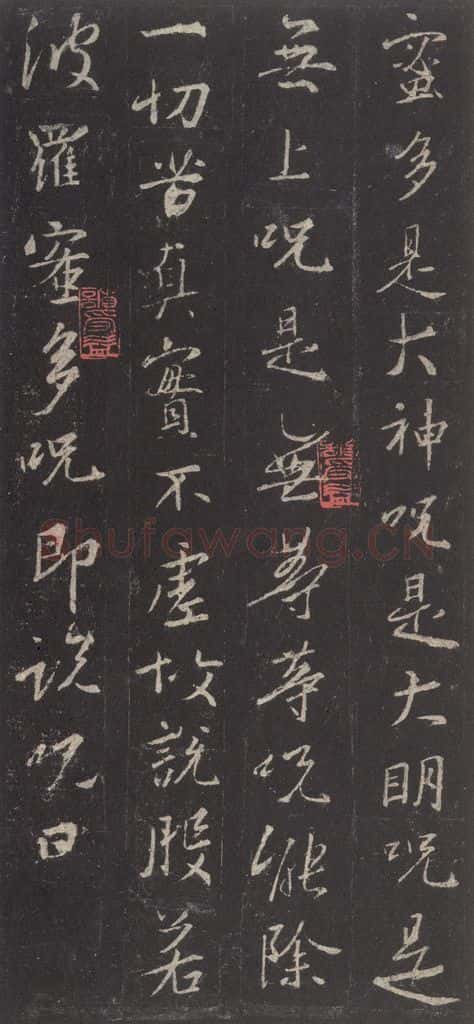 蜜多是大神呪是大明呪是
無上呪是無等等呪能除
一切苦真實不虛故說般若
波羅蜜多呪即說呪曰
shufawang.CN